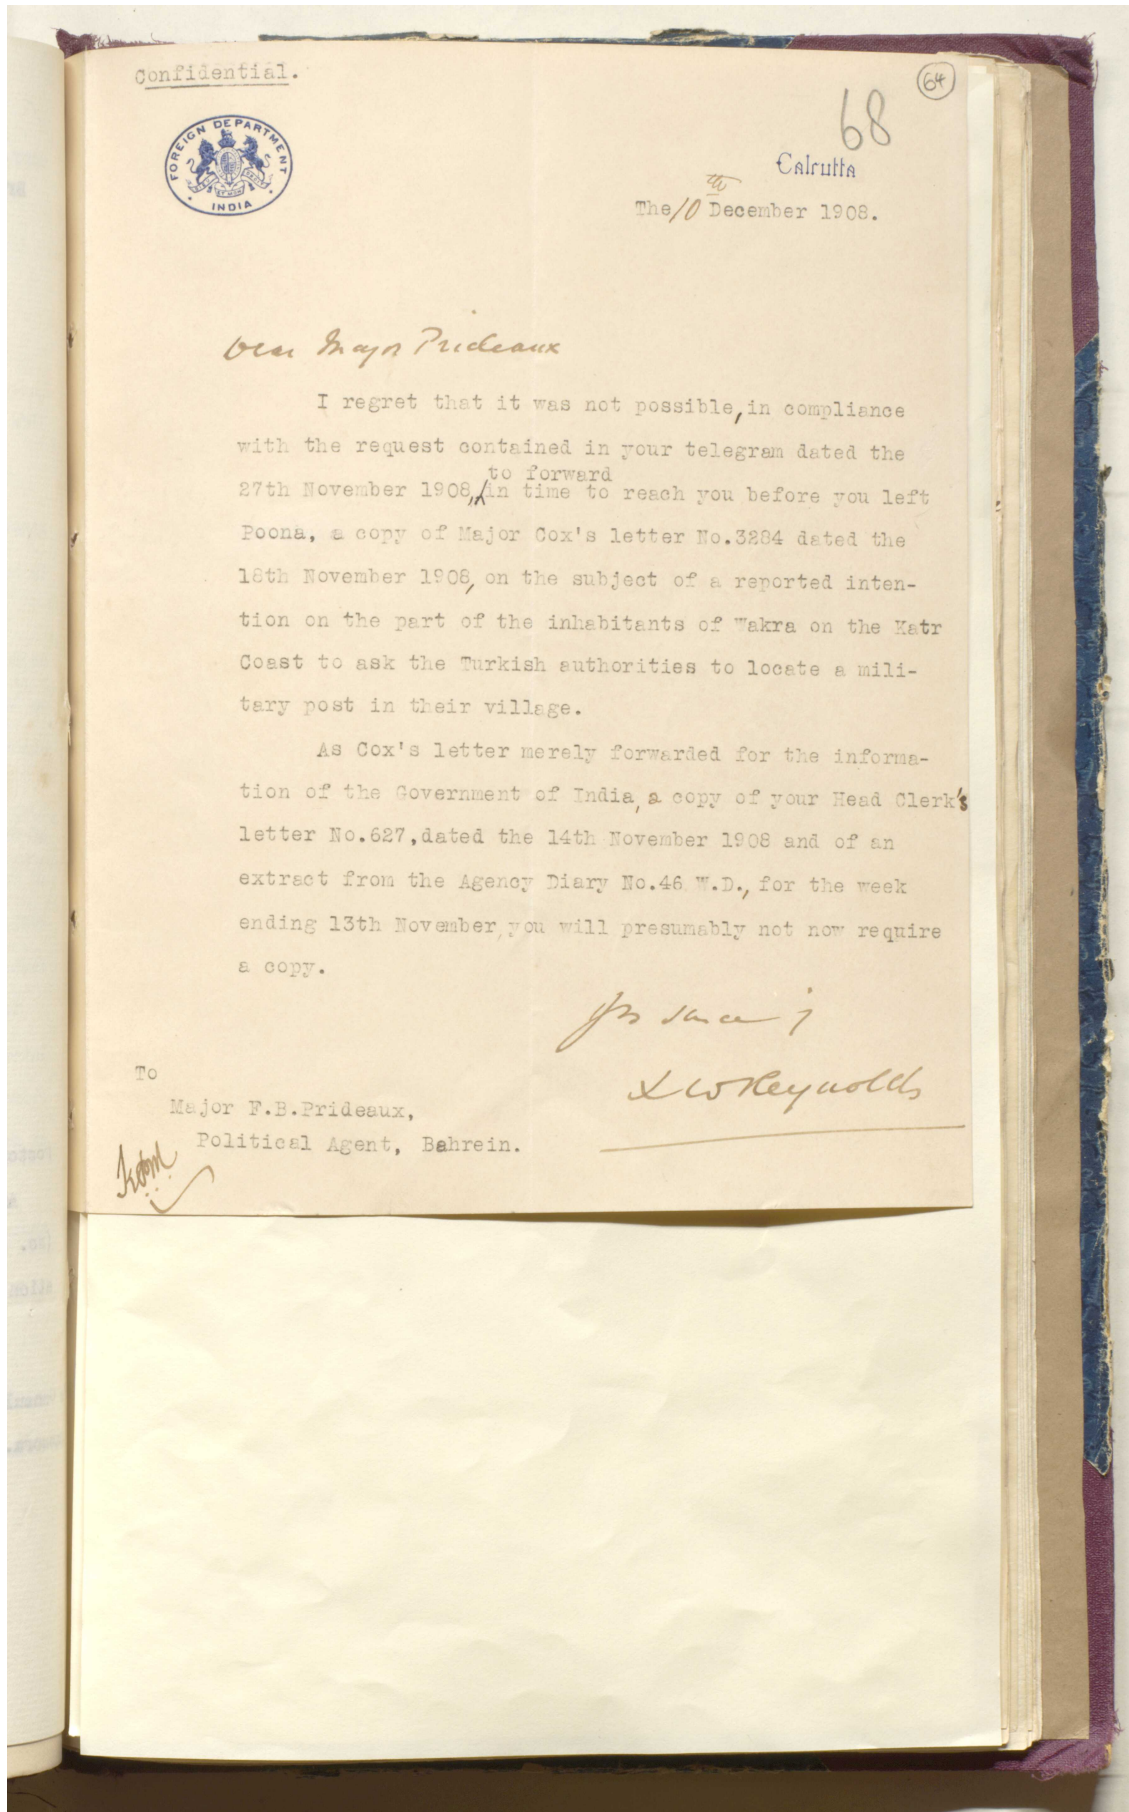 Confidential.
64
68
FOREIGN DEPARTMENT
INDIA
Calcutta
The 10th December 1908.
Dear Major Prideaux
I regret that it was not possible, in compliance
with the request contained in your telegram dated the
to forward
27th November 1908, in time to reach you before you left
Poona, a copy of Major Cox's letter No.3284 dated the
18th November 1908, on the subject of a reported inten-
tion on the part of the inhabitants of Wakra on the Katr
Coast to ask the Turkish authorities to locate a mili-
tary post in their village.
As Cox's letter merely forwarded for the informa-
tion of the Government of India, a copy of your Head Clerk's
letter No.627, dated the 14th November 1908 and of an
extract from the Agency Diary No.46 W.D., for the week
ending 13th November, you will presumably not now require
a copy.
L W Reynolds
To
Major F.B.Prideaux,
Political Agent, Bahrein.